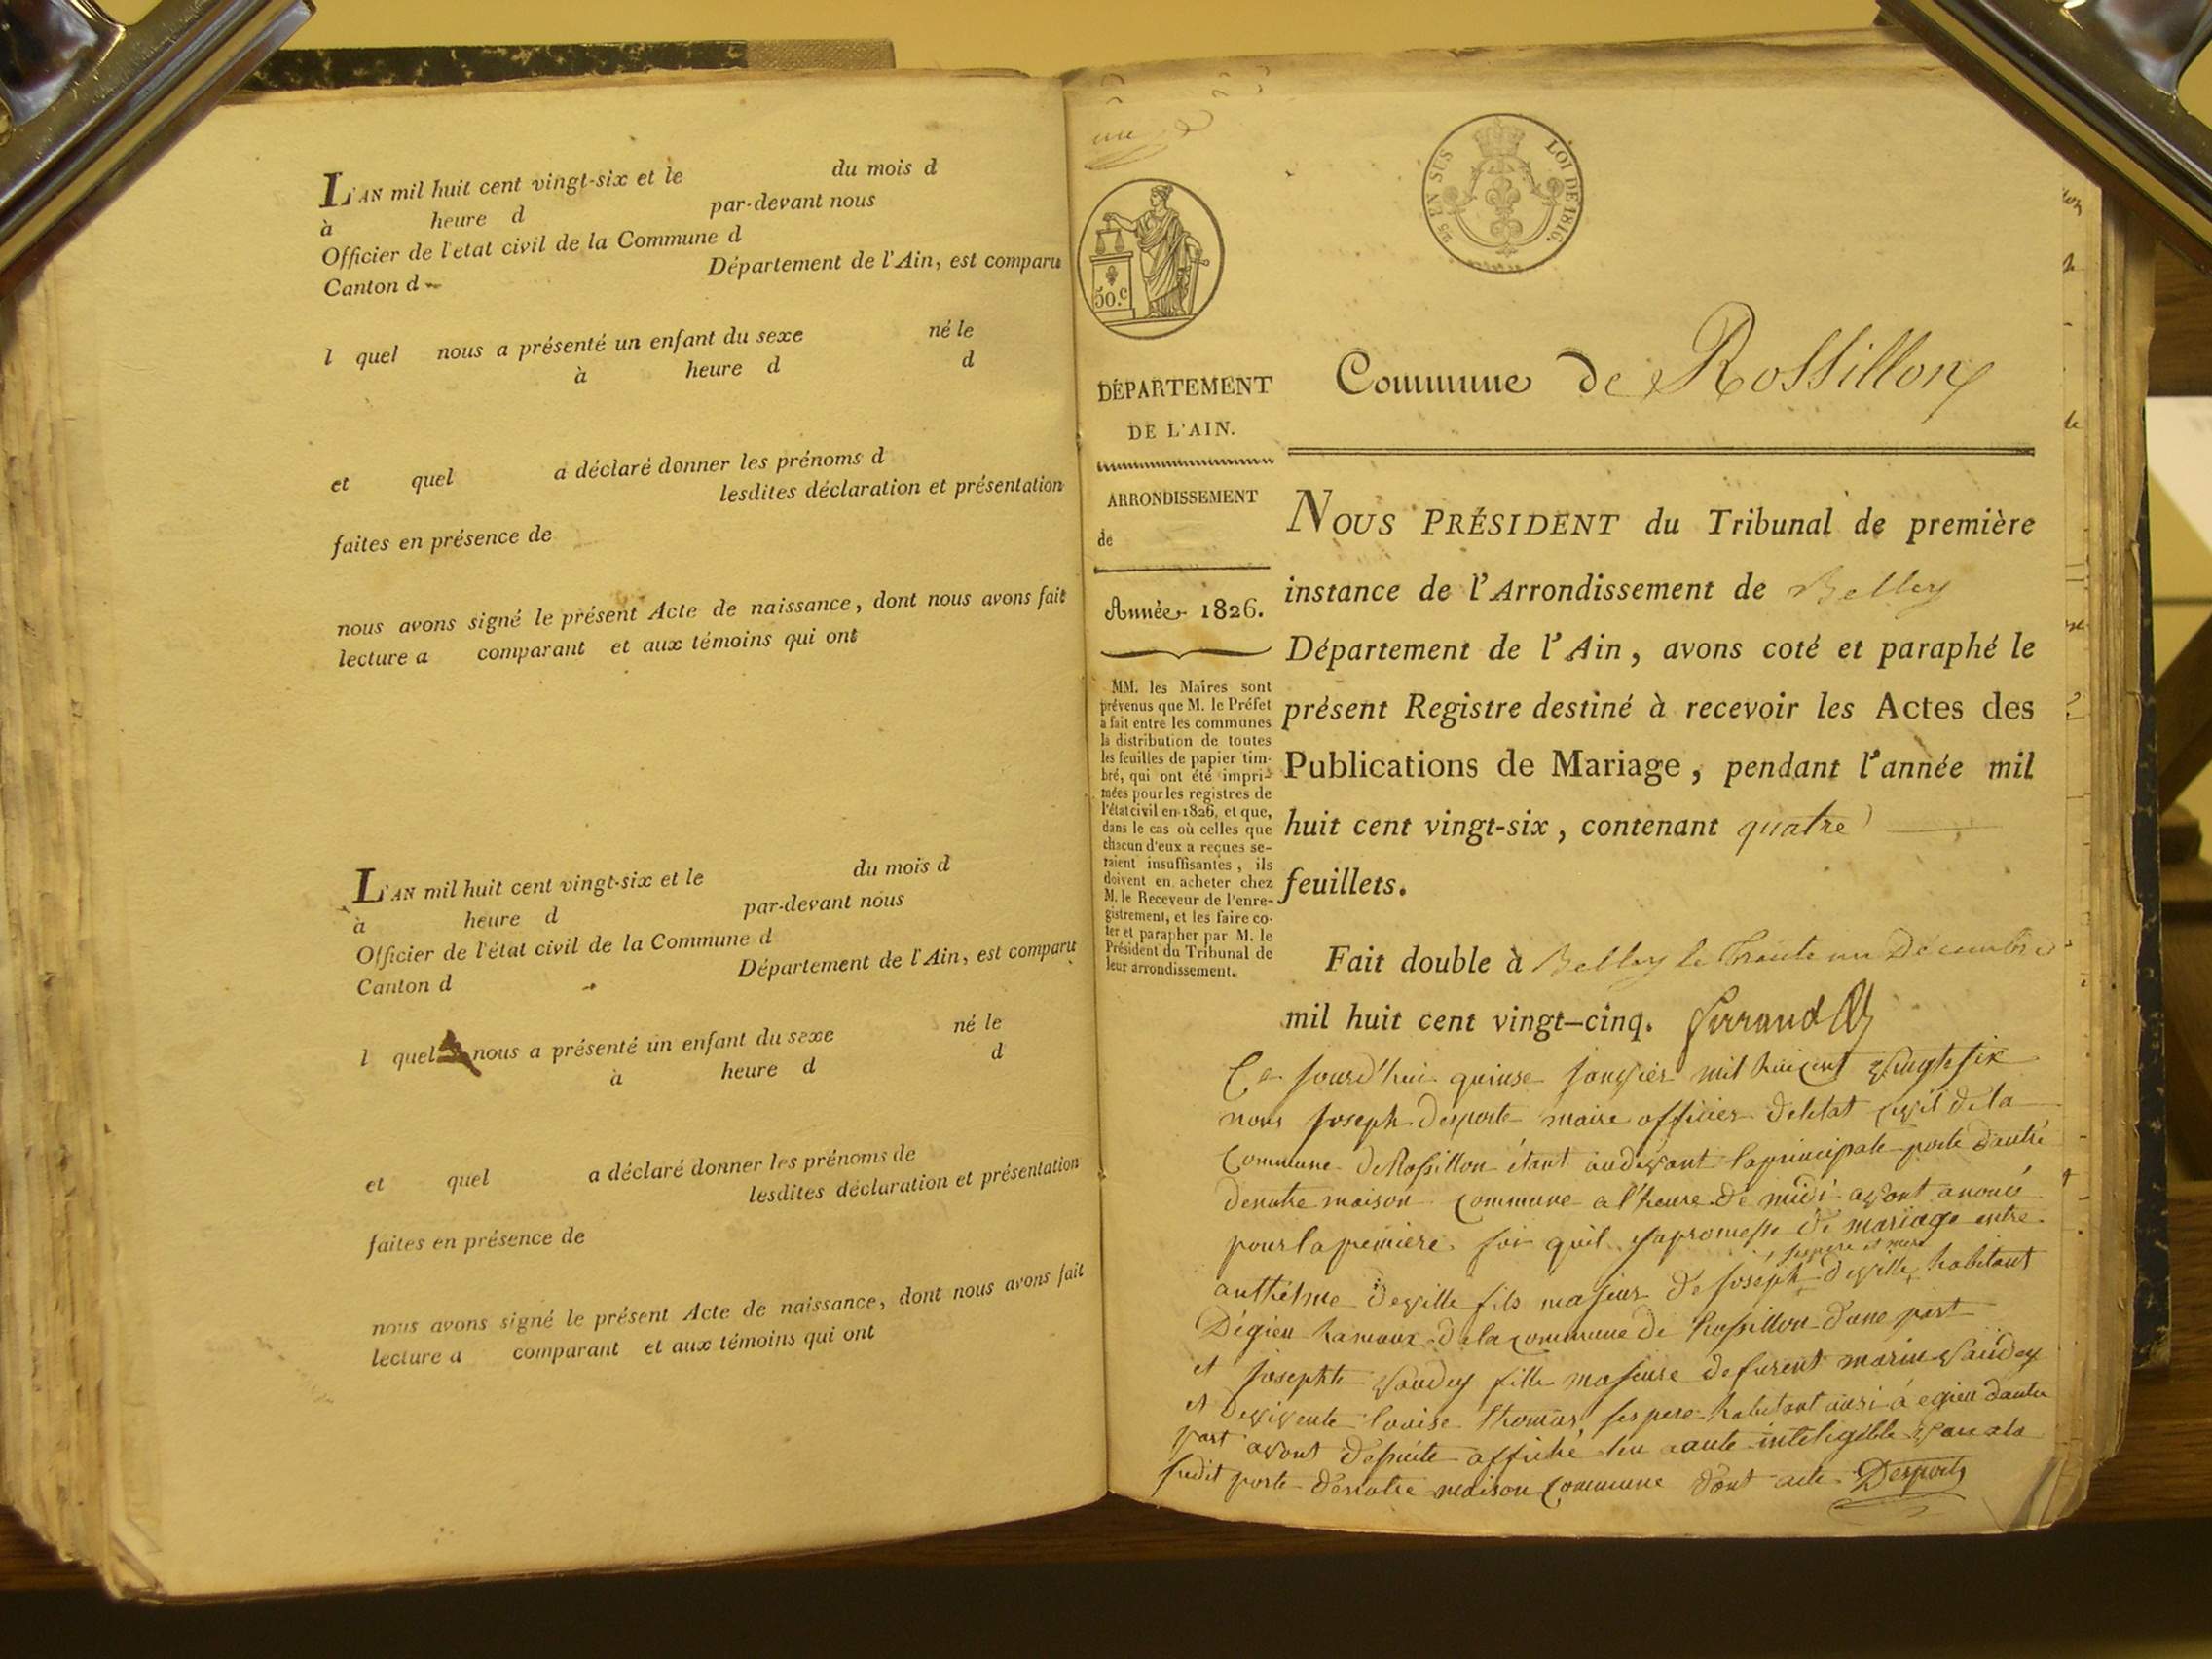 L'AN mil huit cent vingt-six et le du mois d
à heure d par-devant nous
Officier de l'etat civil de la Commune d
Canton d Département de l'Ain, est comparu
l quel nous a présenté un enfant du sexe né le
à heure d d
et quel a déclaré donner les prénoms d
lesdites déclaration et présentation
faites en présence de
nous avons signé le présent Acte de naissance, dont nous avons fait
lecture a comparant et aux témoins qui ont
L'AN mil huit cent vingt-six et le du mois d
à heure d par-devant nous
Officier de l'état civil de la Commune d
Canton d Département de l'Ain, est comparu
l quel nous a présenté un enfant du sexe né le
à heure d d
et quel a déclaré donner les prénoms de
lesdites déclaration et présentation
faites en présence de
nous avons signé le présent Acte de naissance, dont nous avons fait
lecture a comparant et aux témoins qui ont
50.c
25 EN SUS LOI DE 1816.
DÉPARTEMENT
DE L'AIN.
ARRONDISSEMENT
de
Année 1826.
MM. les Maires sont
prévenus que M. le Préfet
a fait entre les communes
la distribution de toutes
les feuilles de papier tim-
bré, qui ont été impri-
mées pour les registres de
l'état civil en 1826, et que,
dans le cas où celles que
chacun d'eux a reçues se-
raient insuffisantes, ils
doivent en acheter chez
M. le Receveur de l'enre-
gistrement, et les faire co-
ter et parapher par M. le
Président du Tribunal de
leur arrondissement.
Commune de Rossillon
NOUS PRÉSIDENT du Tribunal de première
instance de l'Arrondissement de Belley
Département de l'Ain, avons coté et paraphé le
présent Registre destiné à recevoir les Actes des
Publications de Mariage, pendant l'année mil
huit cent vingt-six, contenant quatre
feuillets.
Fait double à Belley le Trente un Décembre
mil huit cent vingt-cinq.
Ce jourd'hui quinse janvier mil huicent vingt six
nous joseph desporte maire officier deletat civil de la
Commune de Rossillon étant audevant la principale porte d'autré
denotre maison Commune a l'heure de midi avont anoncé
pour la premiere foi quil ya promesse de mariage entre
anthelme deville fils majeur de joseph deville habitant
Dégieu hameaux dela commune de Rossillon d'une part
et josephte vaudey fille majeure de furent marin vaudey
et devivente louise thomas ses pere habitant ausi à egieu dautre
part avont desuite affiché leu a aute inteligible
sudit porte denotre maison Commune dont acte Desporte